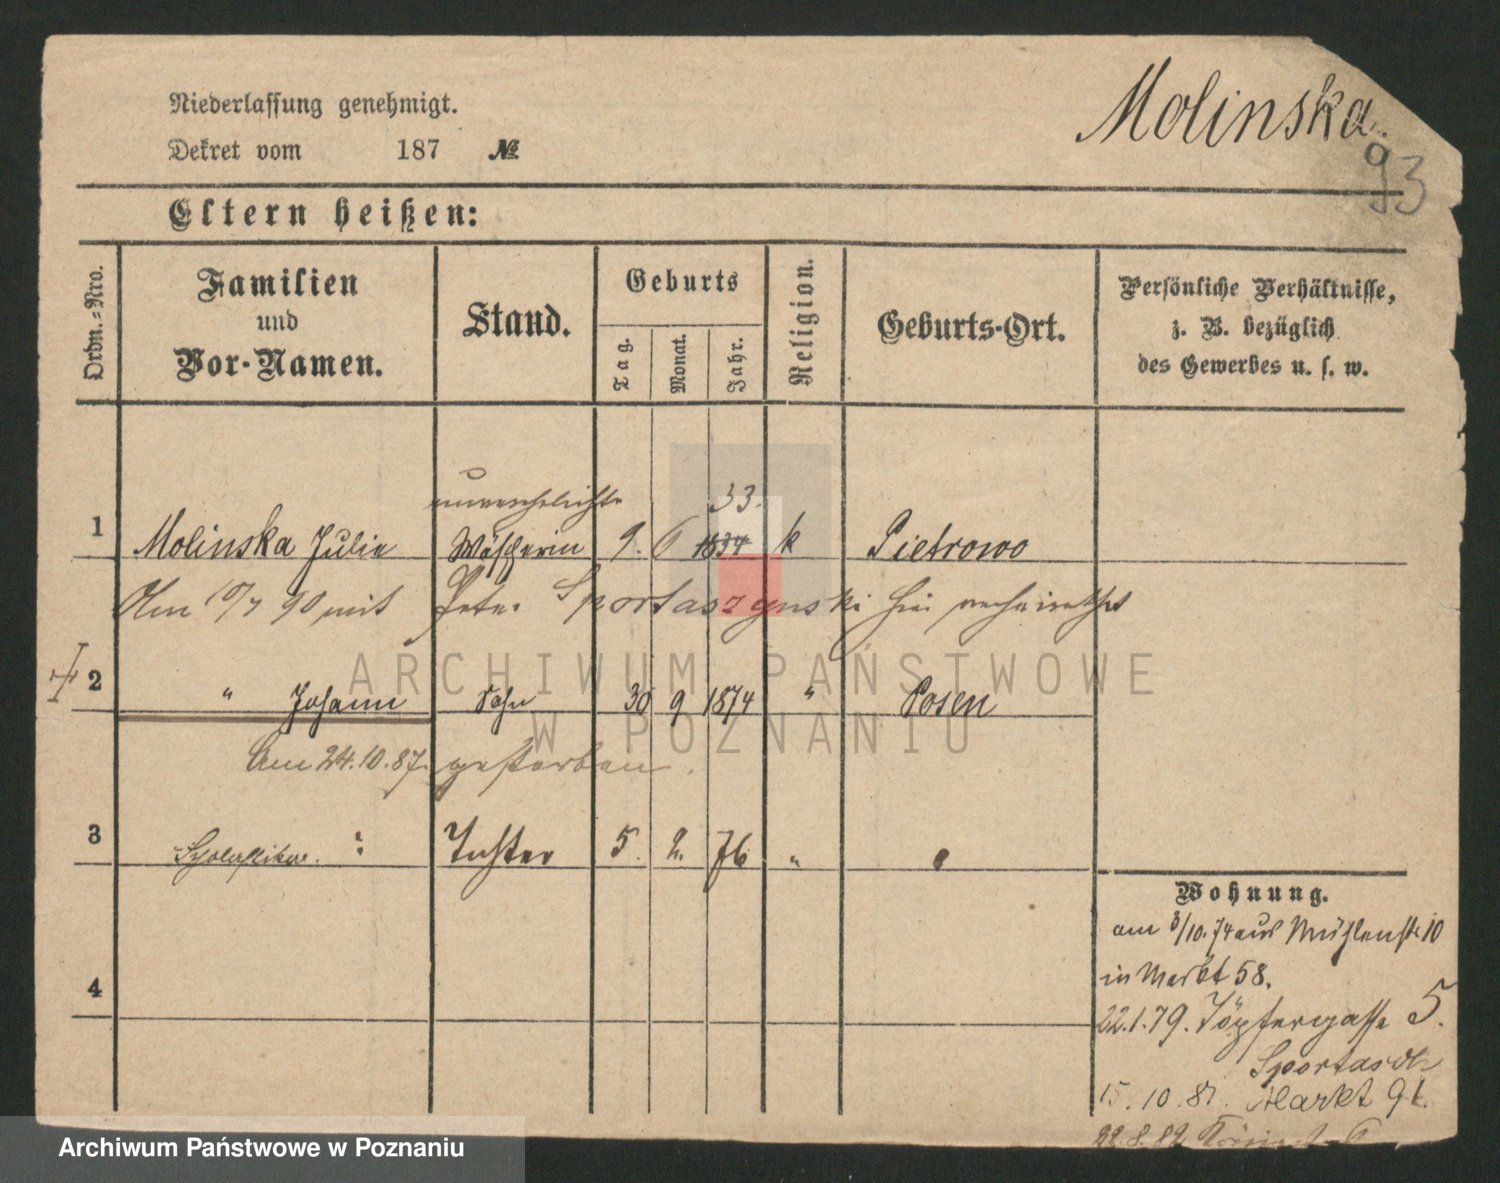 Niederlassung genehmigt.
Molinska.
Dekret vom 187 №
93
Eltern heißen:
Ordn.=Nro.
Familien und Vor-Namen.
Stand.
Geburts
Tag.
Monat.
Jahr.
Religion.
Geburts-Ort.
Persönliche Verhältnisse,
z. B. bezüglich
des Gewerbes u. s. w.
unverehelichte 33.
1 Molinska Julie Wäscherin 9. 6 1834 k Pietrowo
Am 10/7 90 mit Peter Sportaszynski hier verheirathet
2 " Johann Sohn 30 9 1874 " Posen
Am 24.10.87. gestorben.
3 Scholastika. : Tochter 5. 2. 76 "
4
Wohnung.
am 3/10.74 aus Mühlenstr 10
in Markt 58.
22.1.79. Töpfergasse 5.
15.10.81. Markt 91.
22.8.82
ARCHIWUM PAŃSTWOWE
W POZNANIU
Archiwum Państwowe w Poznaniu